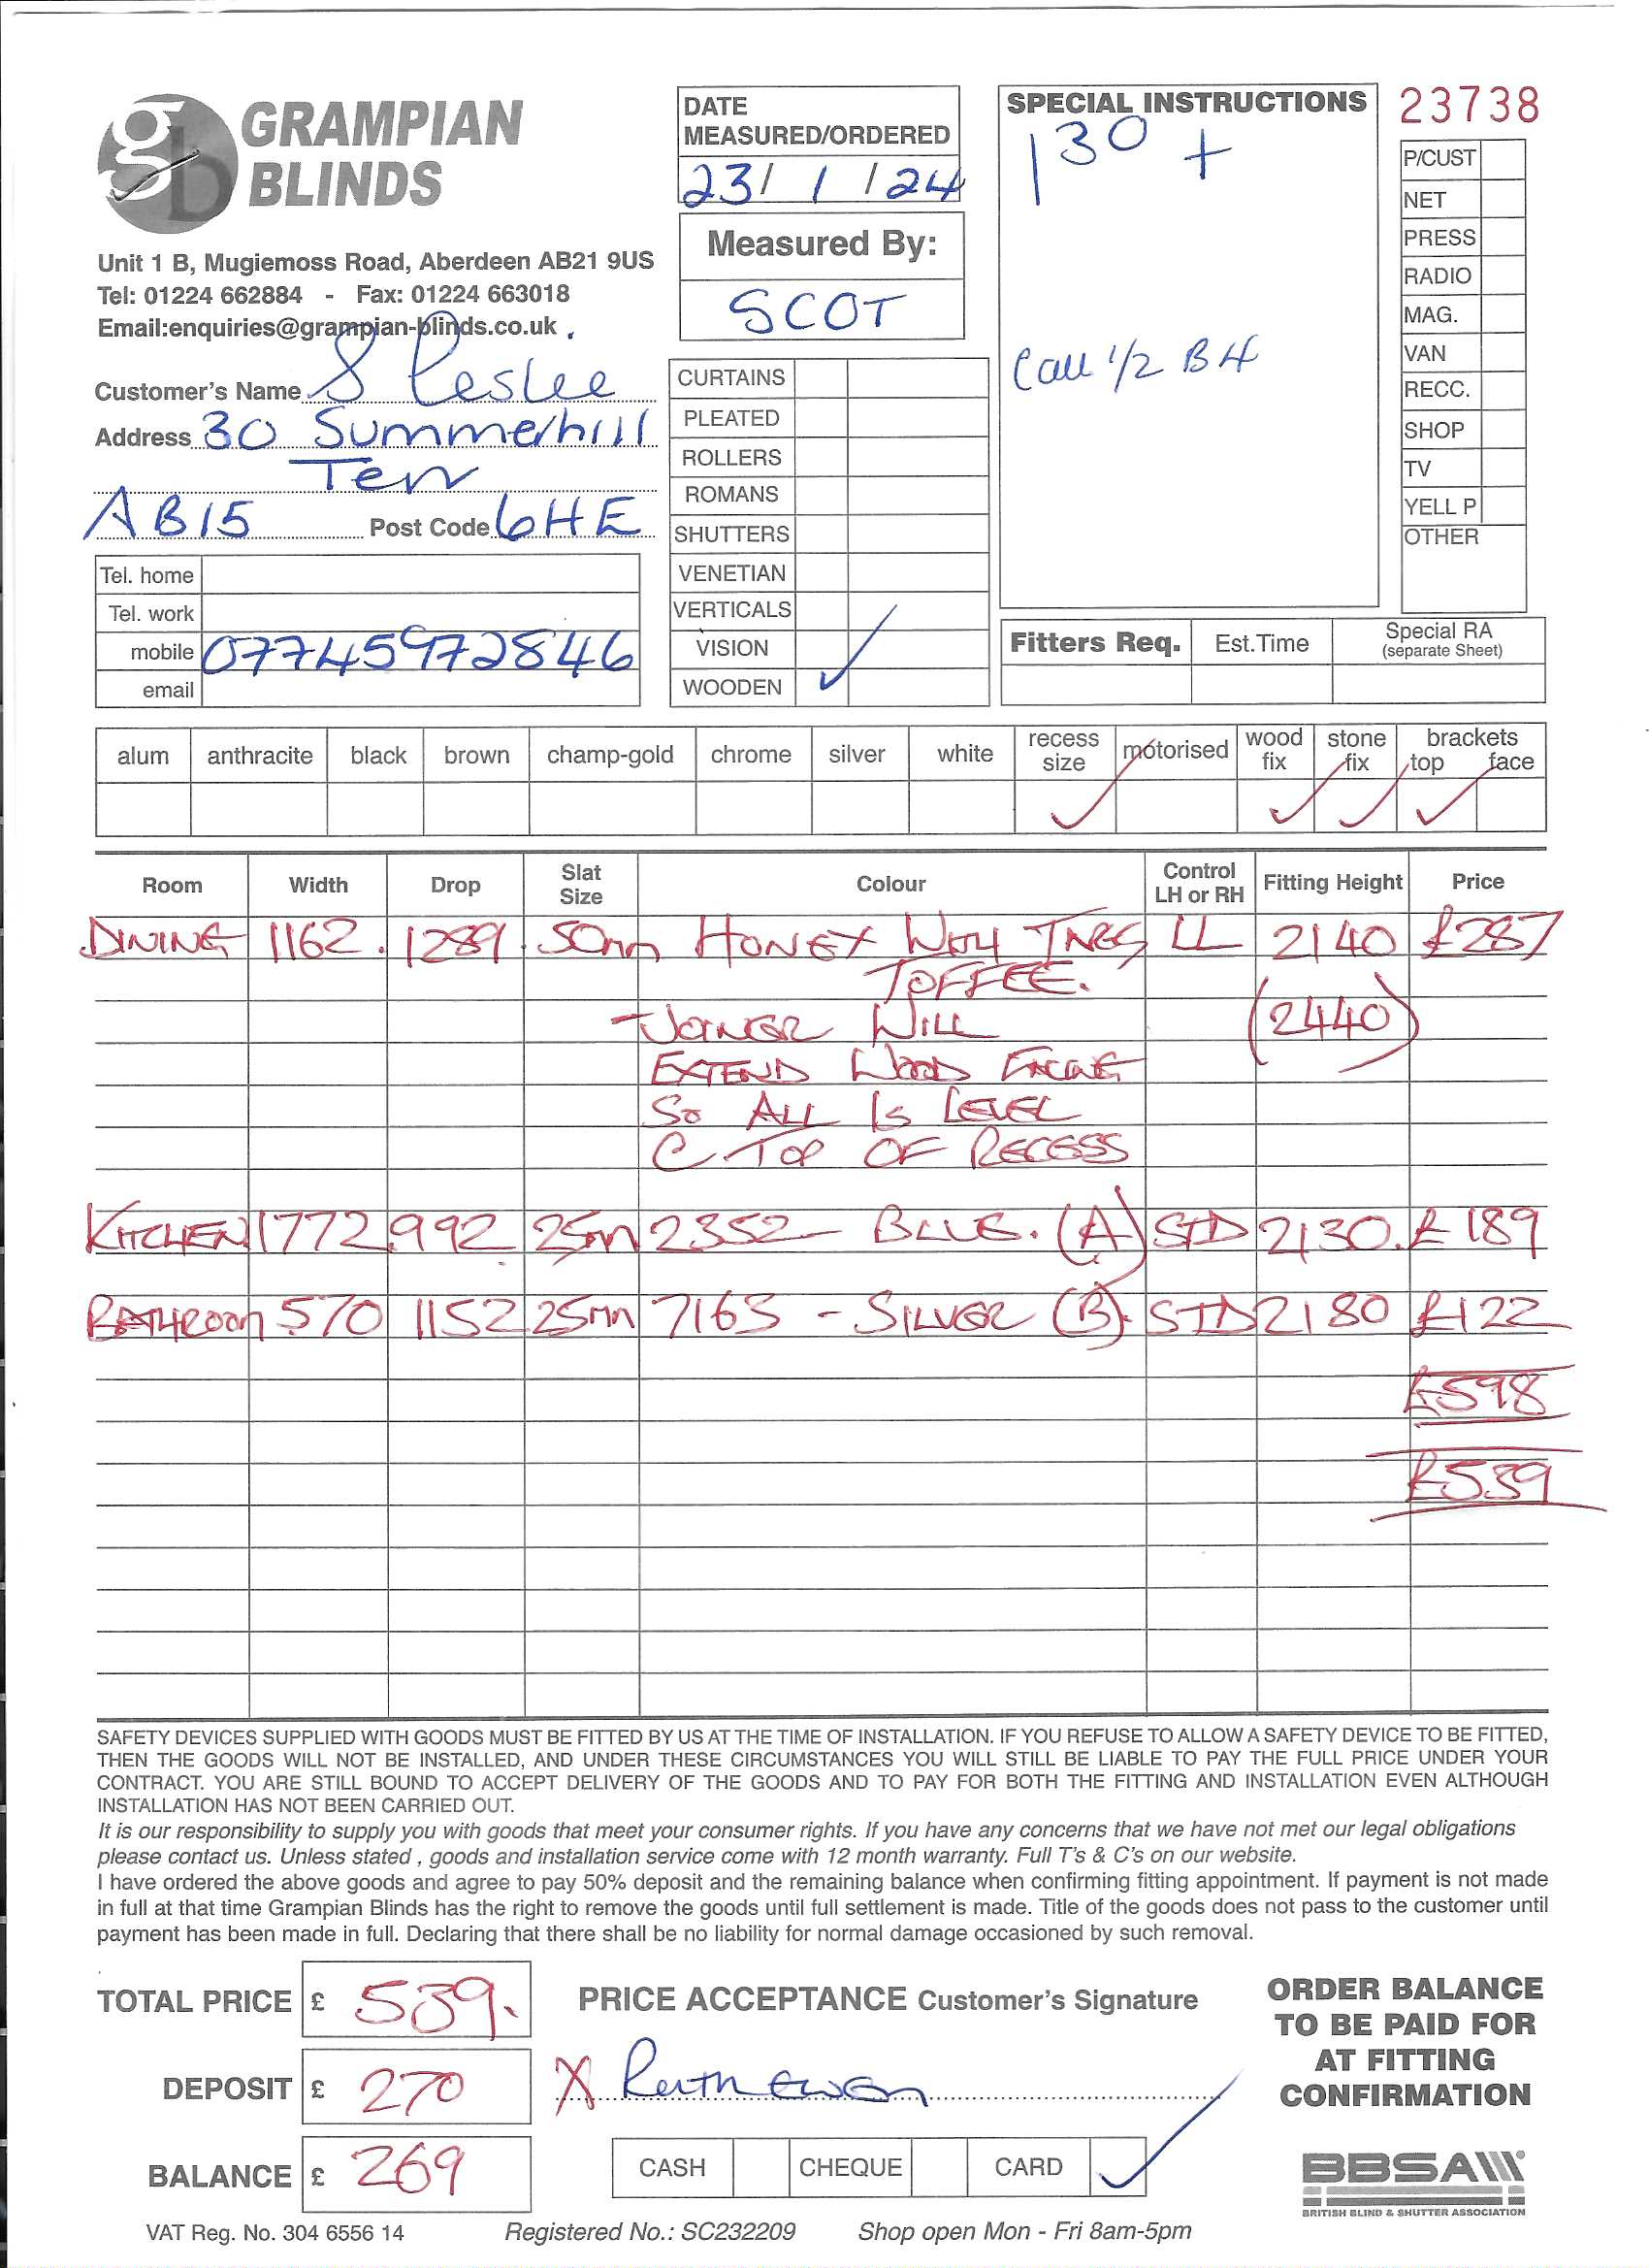 GRAMPIAN
BLINDS
gb
Unit 1 B, Mugiemoss Road, Aberdeen AB21 9US
Tel: 01224 662884 - Fax: 01224 663018
Email:enquiries@grampian-blinds.co.uk
DATE
MEASURED/ORDERED
23/1/24
Measured By:
SCOT
SPECIAL INSTRUCTIONS
130 +
Call 1/2 B4
23738
P/CUST
NET
PRESS
RADIO
MAG.
VAN
RECC.
SHOP
TV
YELL P
OTHER
Customer's Name S Leslee
Address 30 Summerhill
Terr
AB15 Post Code 6HE
Tel. home
Tel. work
mobile 07745972846
email
CURTAINS
PLEATED
ROLLERS
ROMANS
SHUTTERS
VENETIAN
VERTICALS
VISION
WOODEN ✓
Fitters Req. Est.Time Special RA
(separate Sheet)
alum anthracite black brown champ-gold chrome silver white recess size motorised wood fix stone fix brackets top face
✓ ✓ ✓ ✓
Room Width Drop Slat Size Colour Control LH or RH Fitting Height Price
DINING 1162 1289 50mm HONEY TRES LL 2140 £287
TOFFEE.
- JOINER WILL (2440)
EXTEND WOOD FACING
SO ALL IS LEVEL
@ TOP OF RECESS
KITCHEN 1772 992 25m 2352 - BLUE. (A) STD 2130. £189
BATHROOM 570 1152 25mm 7163 - SILVER (B). STD 2180 £122
£598
£539
SAFETY DEVICES SUPPLIED WITH GOODS MUST BE FITTED BY US AT THE TIME OF INSTALLATION. IF YOU REFUSE TO ALLOW A SAFETY DEVICE TO BE FITTED,
THEN THE GOODS WILL NOT BE INSTALLED, AND UNDER THESE CIRCUMSTANCES YOU WILL STILL BE LIABLE TO PAY THE FULL PRICE UNDER YOUR
CONTRACT. YOU ARE STILL BOUND TO ACCEPT DELIVERY OF THE GOODS AND TO PAY FOR BOTH THE FITTING AND INSTALLATION EVEN ALTHOUGH
INSTALLATION HAS NOT BEEN CARRIED OUT.
It is our responsibility to supply you with goods that meet your consumer rights. If you have any concerns that we have not met our legal obligations
please contact us. Unless stated , goods and installation service come with 12 month warranty. Full T's & C's on our website.
I have ordered the above goods and agree to pay 50% deposit and the remaining balance when confirming fitting appointment. If payment is not made
in full at that time Grampian Blinds has the right to remove the goods until full settlement is made. Title of the goods does not pass to the customer until
payment has been made in full. Declaring that there shall be no liability for normal damage occasioned by such removal.
TOTAL PRICE £ 539.
DEPOSIT £ 270
BALANCE £ 269
PRICE ACCEPTANCE Customer's Signature
X Ruth Ewen
CASH CHEQUE CARD ✓
ORDER BALANCE
TO BE PAID FOR
AT FITTING
CONFIRMATION
BBSA
BRITISH BLIND & SHUTTER ASSOCIATION
VAT Reg. No. 304 6556 14 Registered No.: SC232209 Shop open Mon - Fri 8am-5pm